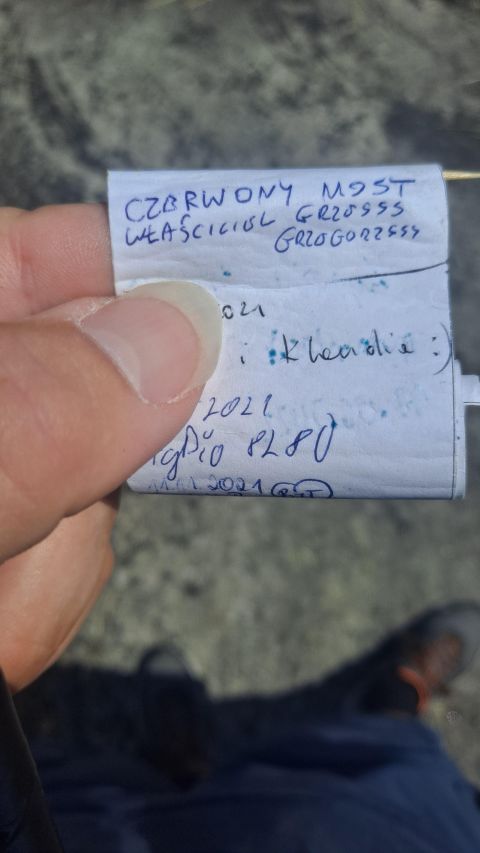 CZERWONY MOST
WŁAŚCICIEL GRZESSS
GRZEGORZSSS
021
i Klaudia :)
2021
8280
2021